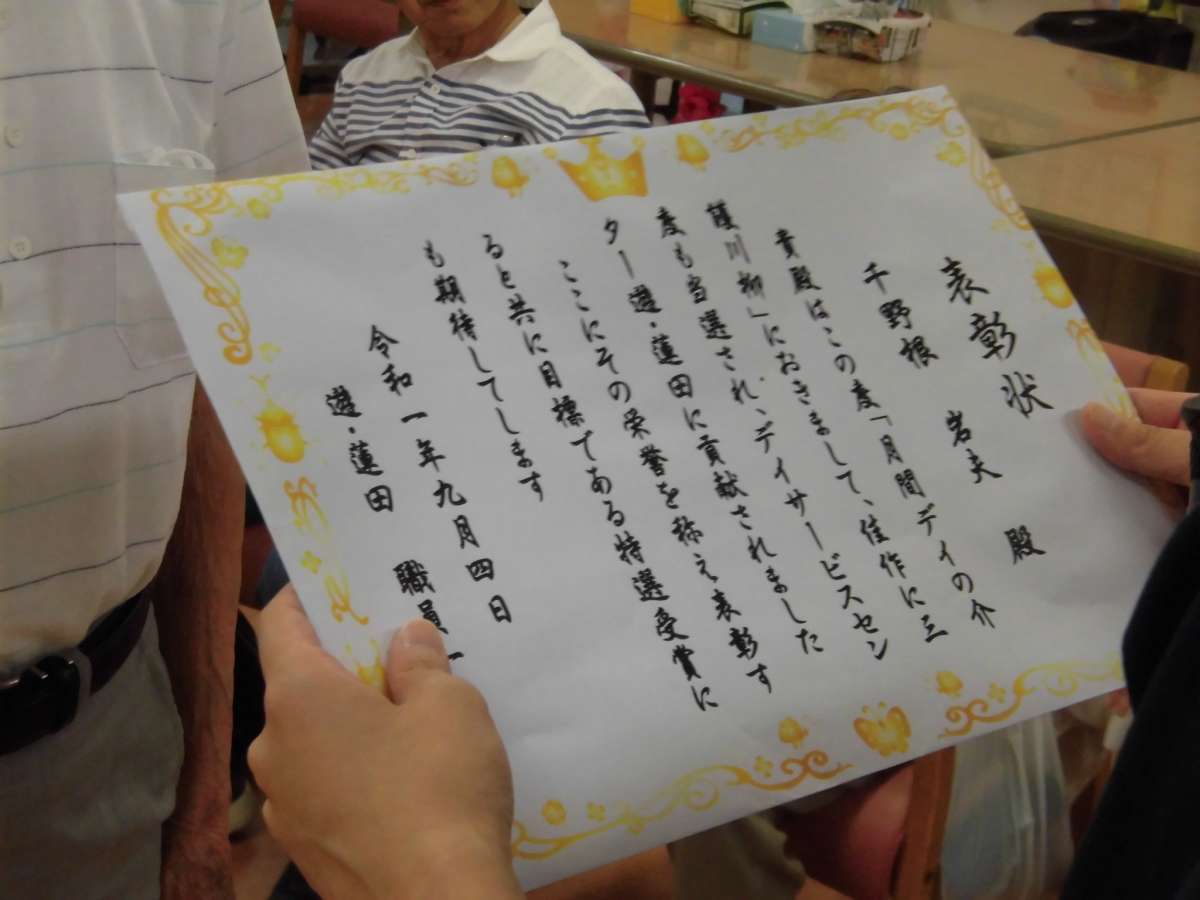 表彰状
千野根 岩夫 殿
貴殿はこの度「月間デイの介
護川柳」におきまして、佳作に三
度も当選され、デイサービスセン
ター遊・蓮田に貢献されました
ここにその栄誉を称え表彰す
ると共に目標である特選受賞に
も期待してします
令和一年九月四日
遊・蓮田 職員一